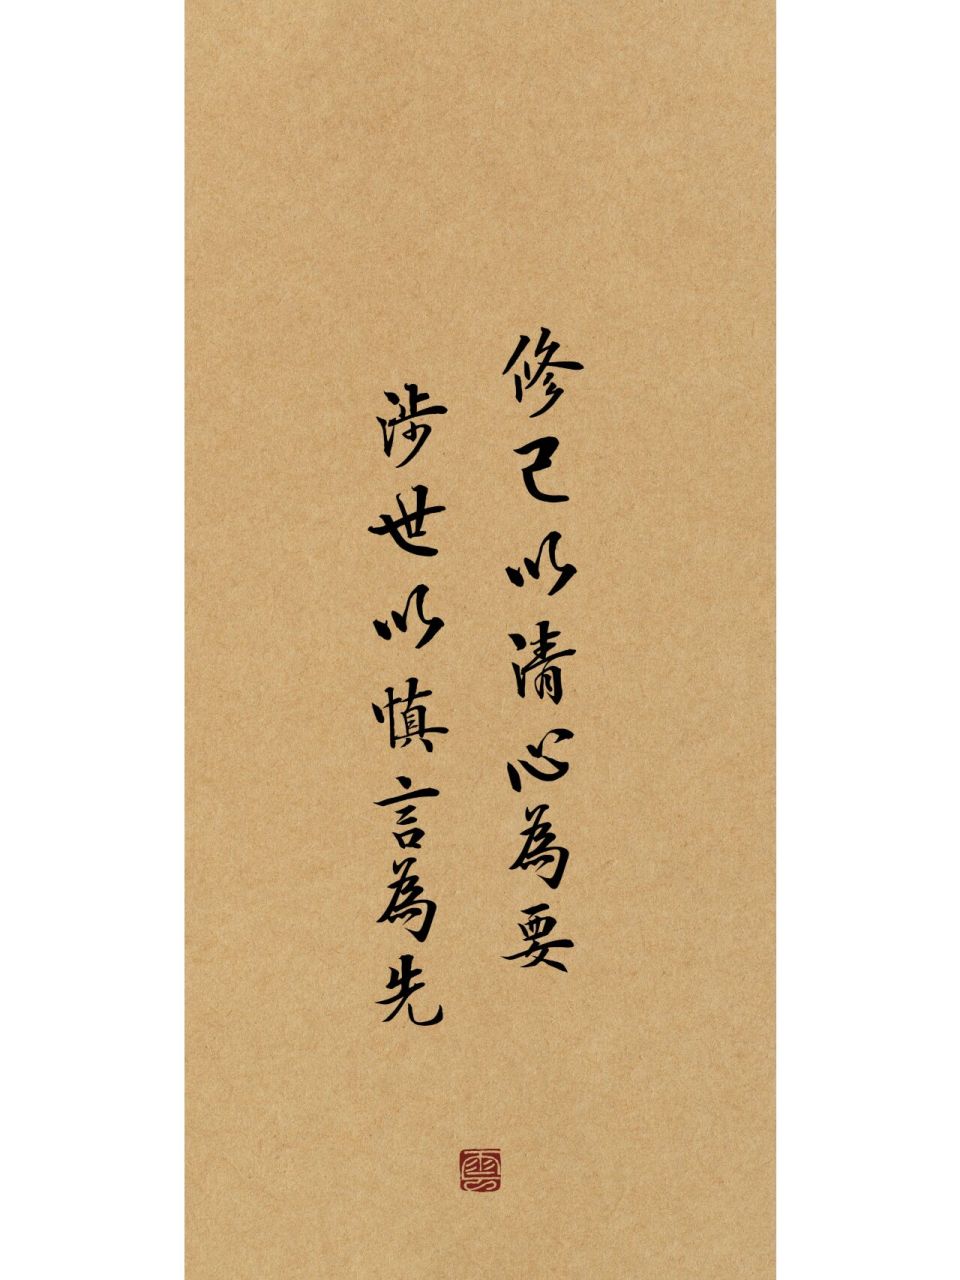 修己以清心為要
涉世以慎言為先
雲